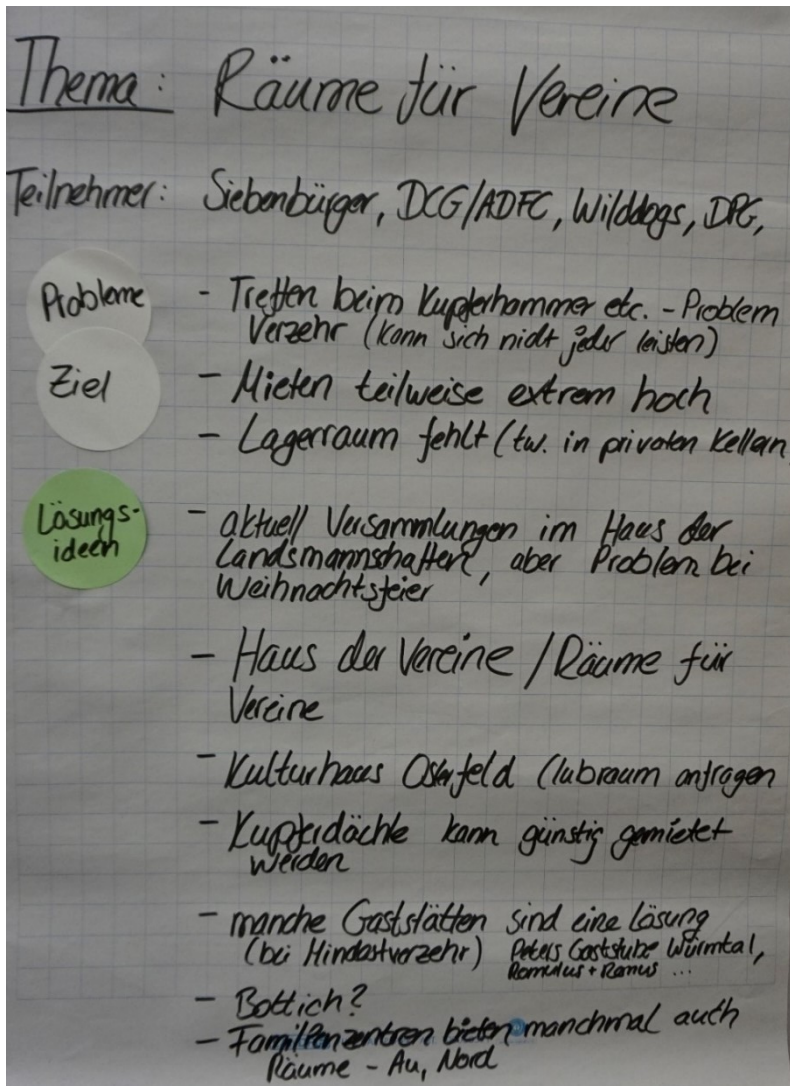 Thema: Räume für Vereine
Teilnehmer: Siebenbürger, DCG/ADFC, Wilddogs, DPG,
Probleme
- Treffen beim Kupferhammer etc. - Problem
Verzehr (kann sich nicht jeder leisten)
Ziel
- Mieten teilweise extrem hoch
- Lagerraum fehlt (tw. in privaten Kellern
Lösungs-
ideen
- aktuell Versammlungen im Haus der
Landsmannschaften, aber Problem bei
Weihnachtsfeier
- Haus der Vereine / Räume für
Vereine
- Kulturhaus Osterfeld Clubraum anfragen
- Kupferdächle kann günstig gemietet
werden
- manche Gaststätten sind eine Lösung
(bei Mindestverzehr) Peters Gaststube Würmtal,
Romulus + Remus ...
- Bottich?
- Familienzentren bieten manchmal auch
Räume - Au, Nord